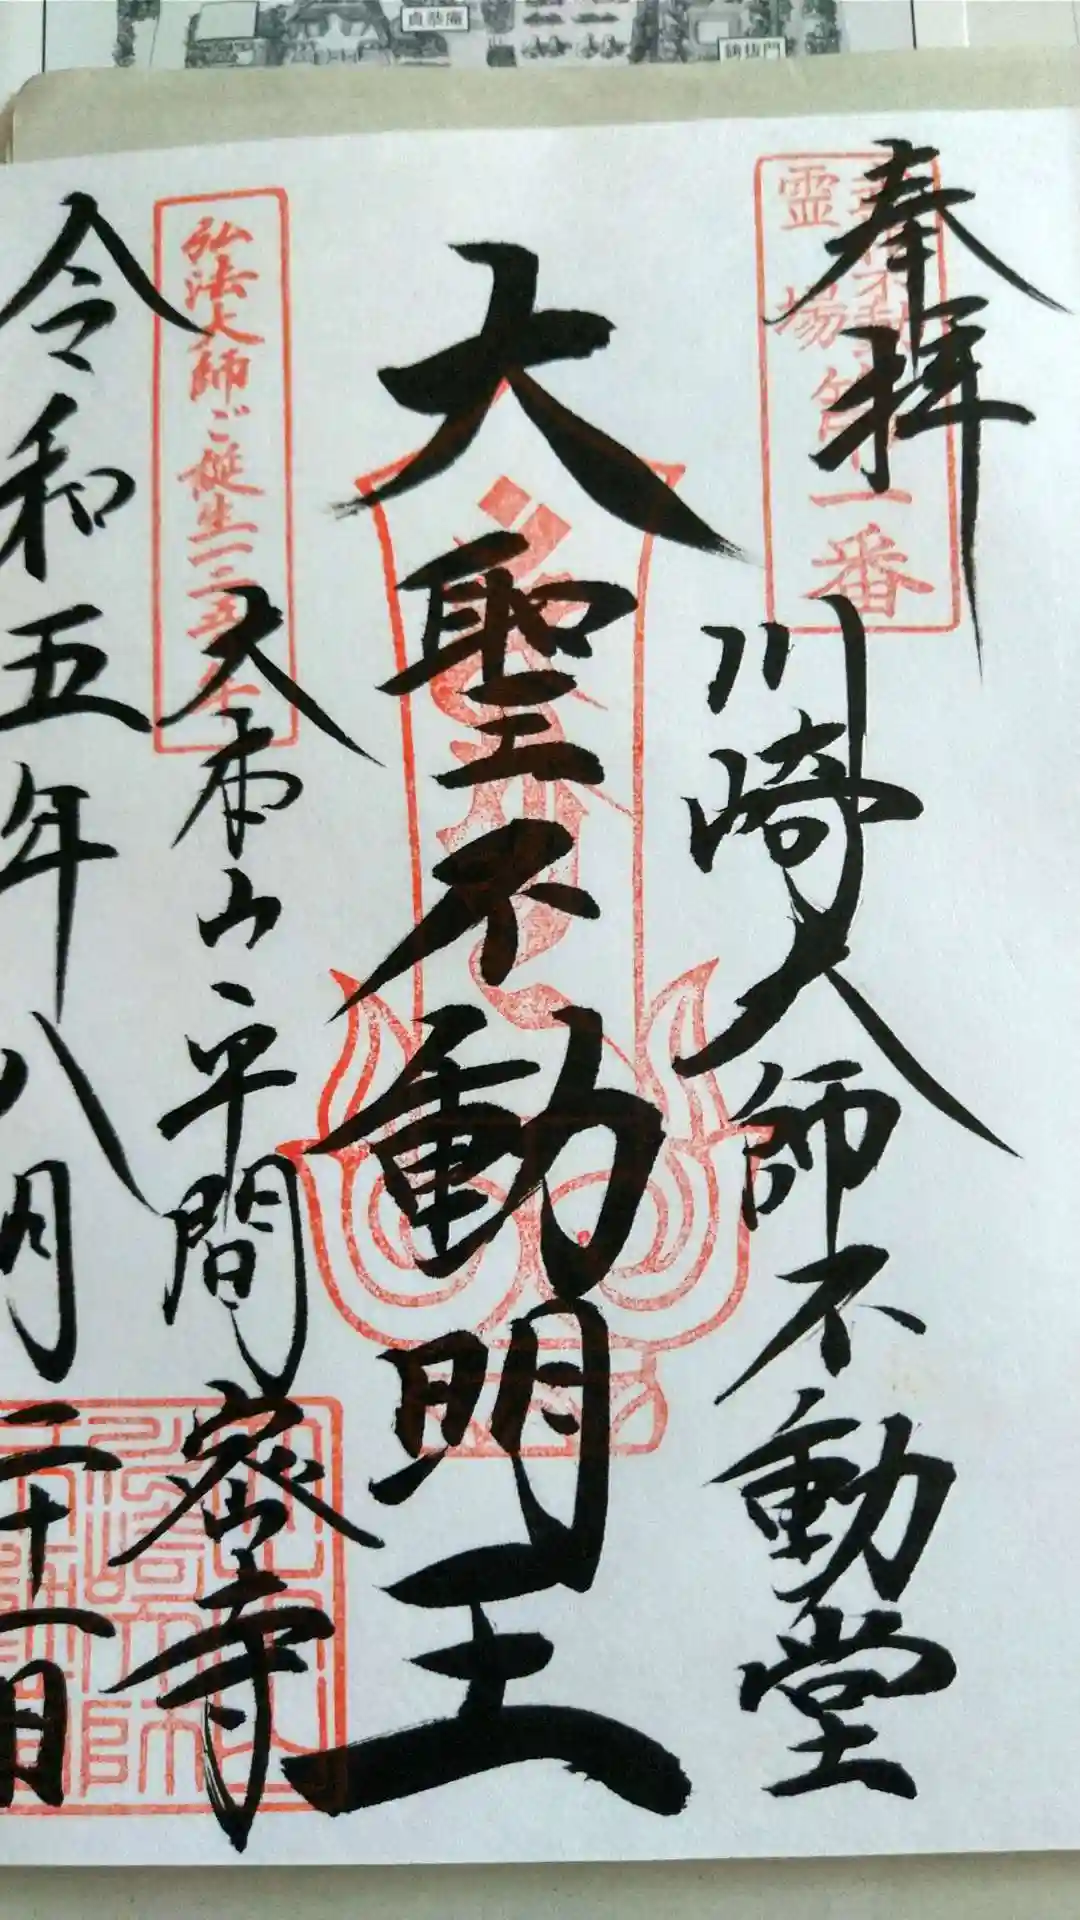 貞恭庵
奉拝
霊場
一番
川崎大師不動堂
大聖不動明王
弘法大師ご誕生一二五
大本山平間密寺
令和五年八月二十一日